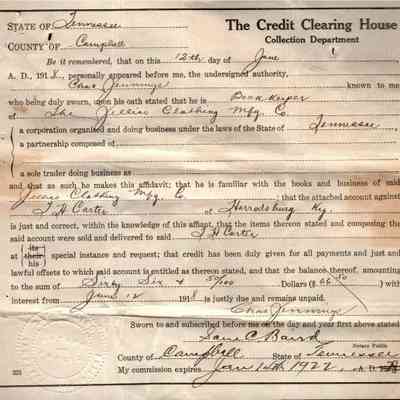 STATE OF Tennessee
The Credit Clearing House
Collection Department
COUNTY OF Campbell
Be it remembered, that on this 12th day of June
A. D., 1918, personally appeared before me, the undersigned authority,
Chas Jennings known to me
who being duly sworn, upon his oath stated that he is Book Keeper
of The Jellico Clothing Mfg. Co.
a corporation organized and doing business under the laws of the State of Tennessee
a partnership composed of
a sole trader doing business as
and that as such he makes this affidavit; that he is familiar with the books and business of said
Jellico Clothing Mfg. Co. ; that the attached account against
J H Carter of Harrodsburg Ky.
is just and correct, within the knowledge of this affiant, that the items thereon stated and composing the
said account were sold and delivered to said J H Carter
at (its / their / his) special instance and request; that credit has been duly given for all payments and just and
lawful offsets to which said account is entitled as thereon stated, and that the balance thereof, amounting
to the sum of Sixty Six & 50/100 Dollars ($ 66 50) with
interest from June 12 1918 is justly due and remains unpaid.
Chas Jennings
Sworn to and subscribed before me on the day and year first above stated
Baird
Notary Public
County of Campbell State of Tennessee
My commission expires Jan 1922 A. D. 19